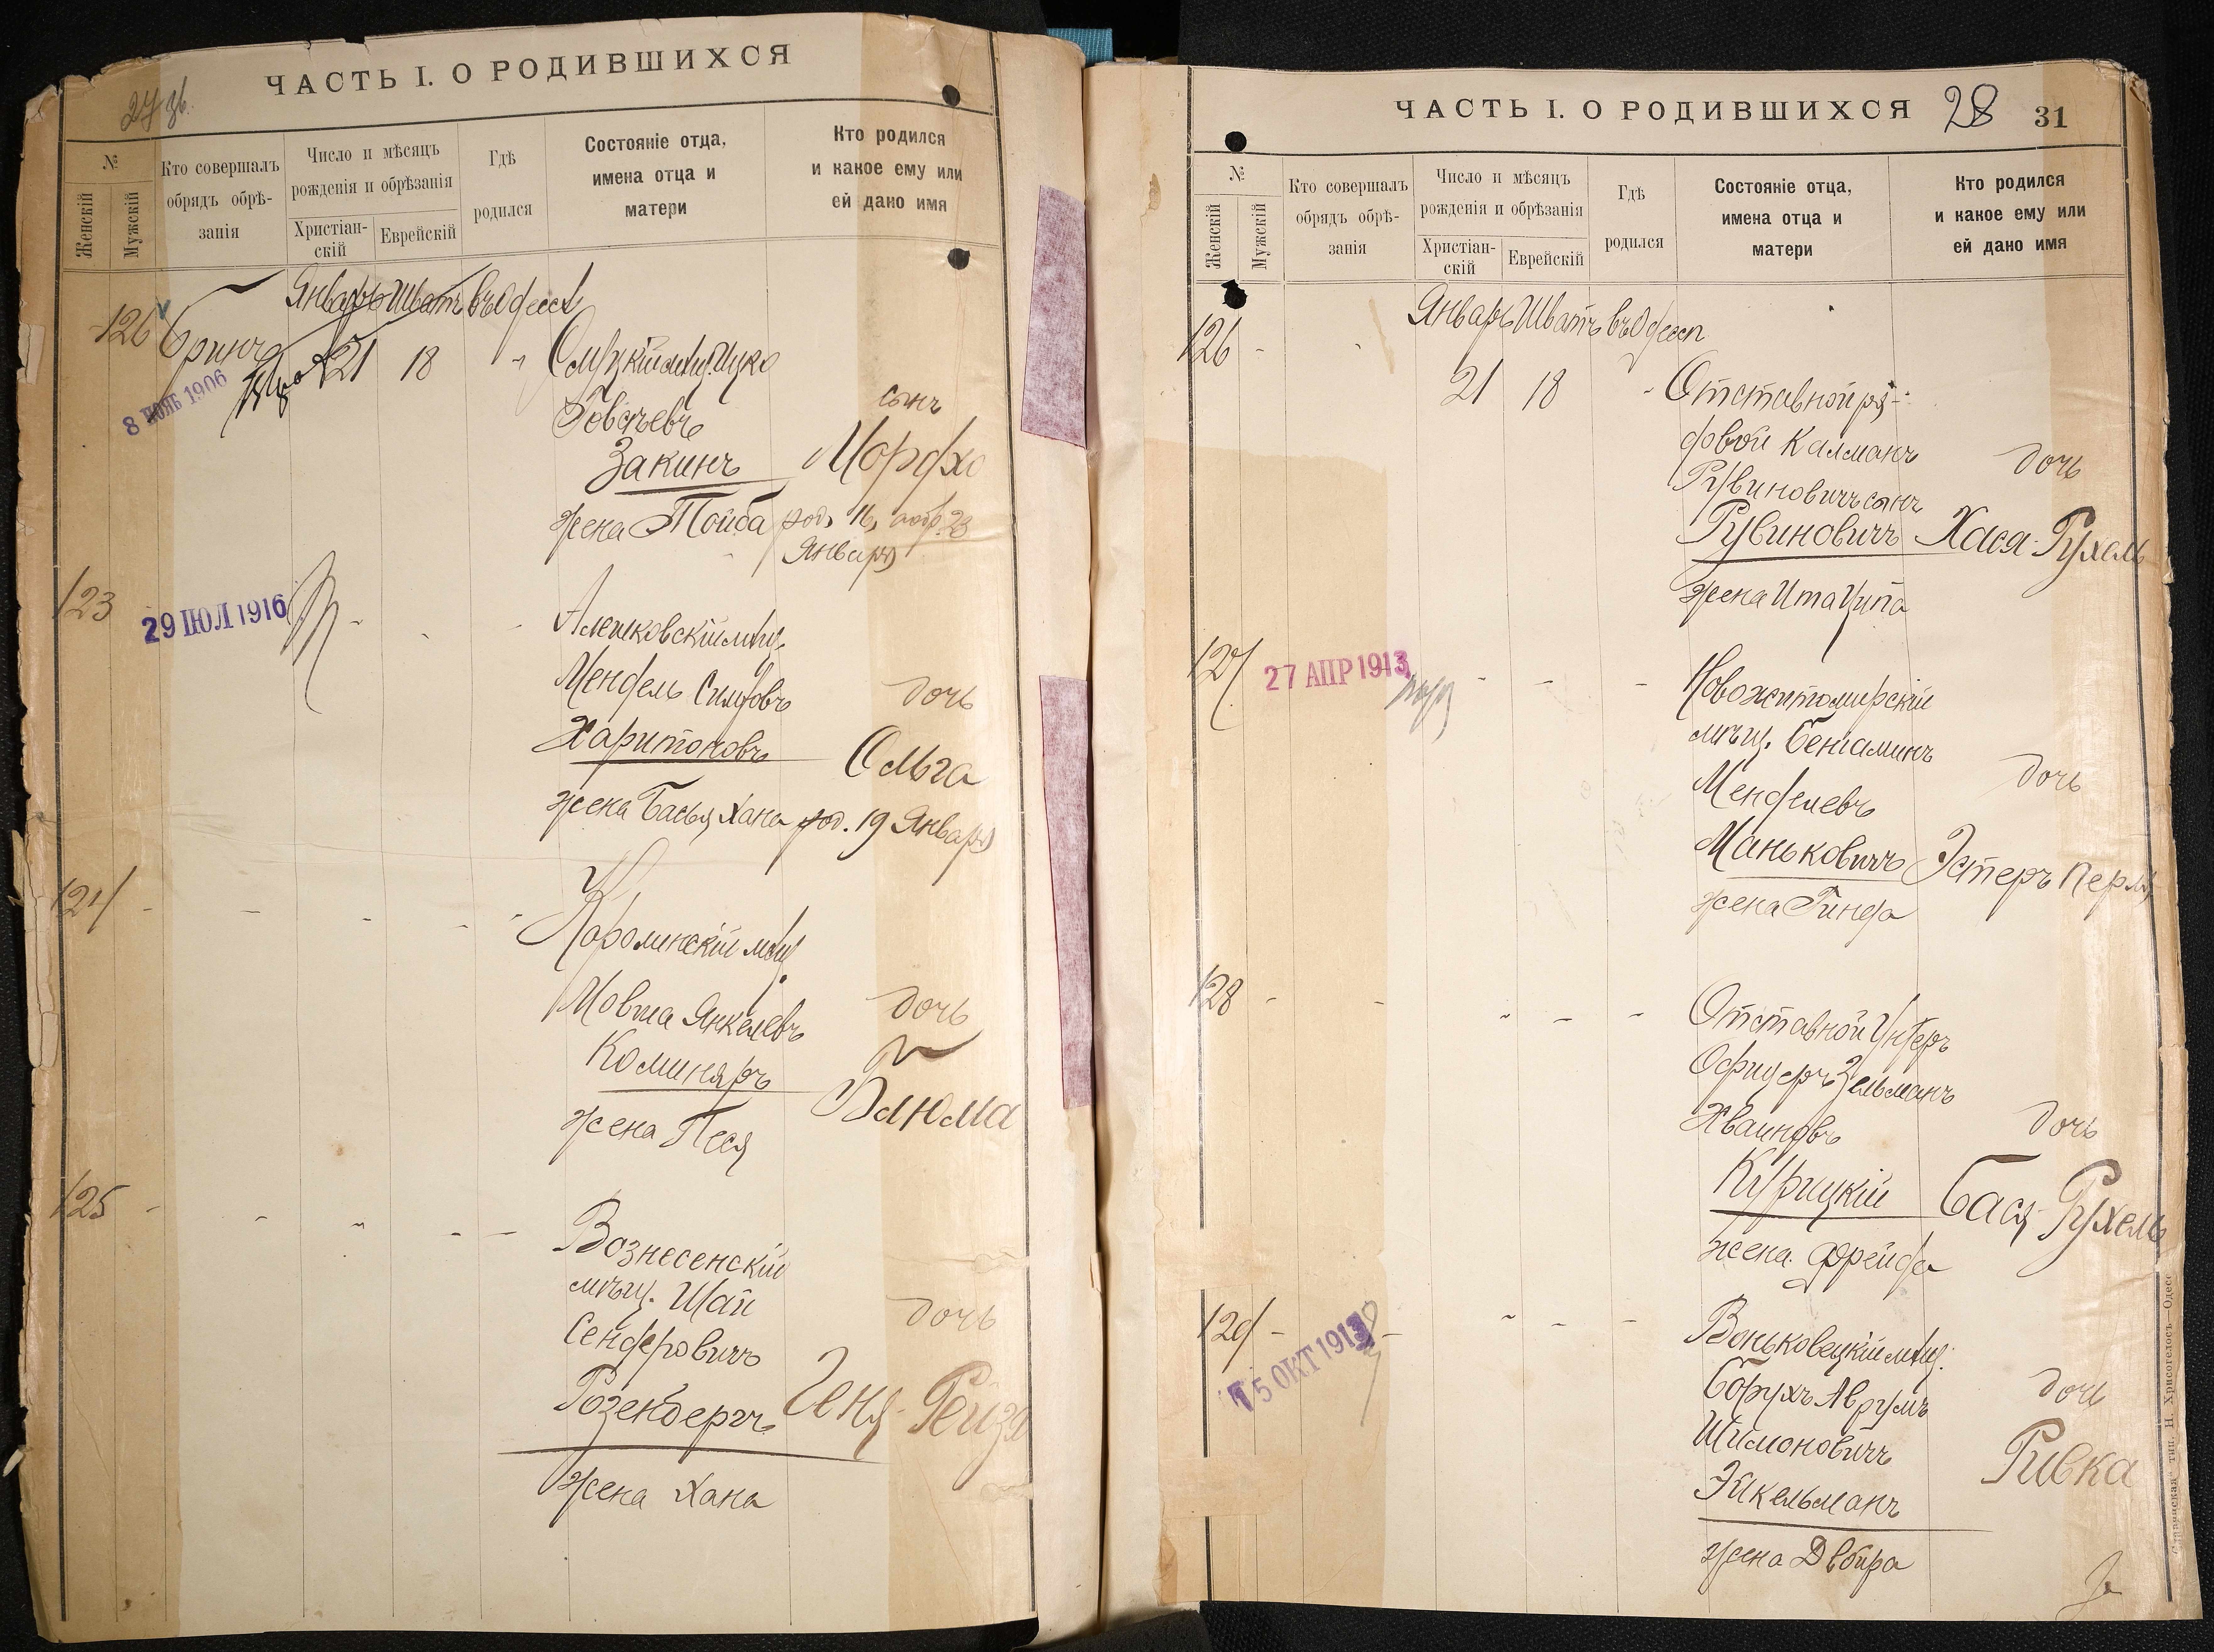 ЧАСТЬ I. О РОДИВШИХСЯ
27
№
Женскій
Мужскій
Кто совершалъ
обрядъ обрѣ-
занія
Число и мѣсяцъ
рожденія и обрѣзанія
Христіан-
скій
Еврейскій
Гдѣ
родился
Состояніе отца,
имена отца и
матери
Кто родился
и какое ему или
ей дано имя
Январь Шватъ въ Одессѣ
126
21 18
8 НОЯБ 1906
Слуцкій мѣщ. Ицко
Товіевъ
Закинъ
жена Тойба
сынъ
Мордхо
род. 16, обр. 23
Января
123
29 ІЮЛ 1916
Алешковскій мѣщ.
Мендель
Харитоновъ
жена Бася Хана
дочь
Ольга
род. 19 Января
124
Каролинскій мѣщ.
Мовша Янкелевъ
Коминяръ
жена Песя
дочь
Блюма
125
Вознесенскій
мѣщ. Шай
Сендеровичъ
Розенбергъ
жена Хана
дочь
Геня-Рейзя
ЧАСТЬ I. О РОДИВШИХСЯ
28
31
№
Женскій
Мужскій
Кто совершалъ
обрядъ обрѣ-
занія
Число и мѣсяцъ
рожденія и обрѣзанія
Христіан-
скій
Еврейскій
Гдѣ
родился
Состояніе отца,
имена отца и
матери
Кто родился
и какое ему или
ей дано имя
Январь Шватъ въ Одессѣ
126
21 18
Отставной ря-
довой Калманъ
Рувиновичъ сынъ
Рувиновичъ
жена Ита Ципа
дочь
Хася-Рухель
127
27 АПР 1913
Новожитомирскій
мѣщ. Беніаминъ
Менделевъ
Маньковичъ
жена Гинда
дочь
Эстеръ Перля
128
Отставной Унтеръ
Офицеръ Зельманъ
Курицкій
жена Фрейда
дочь
Бася-Рухель
129
15 ОКТ 1913
Воньковецкій мѣщ.
Борухъ Аврумъ
Шимоновичъ
Эйкельманъ
жена Двойра
дочь
Ривка
"Славянская" тип. Н. Хрисогелосъ—Одесса